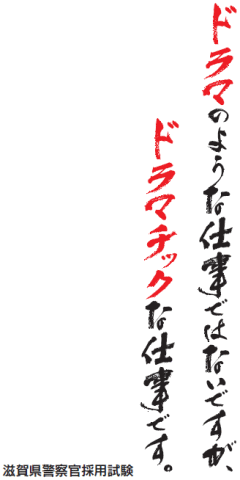 ドラマのような仕事ではないですが、
ドラマチックな仕事です。
滋賀県警察官採用試験